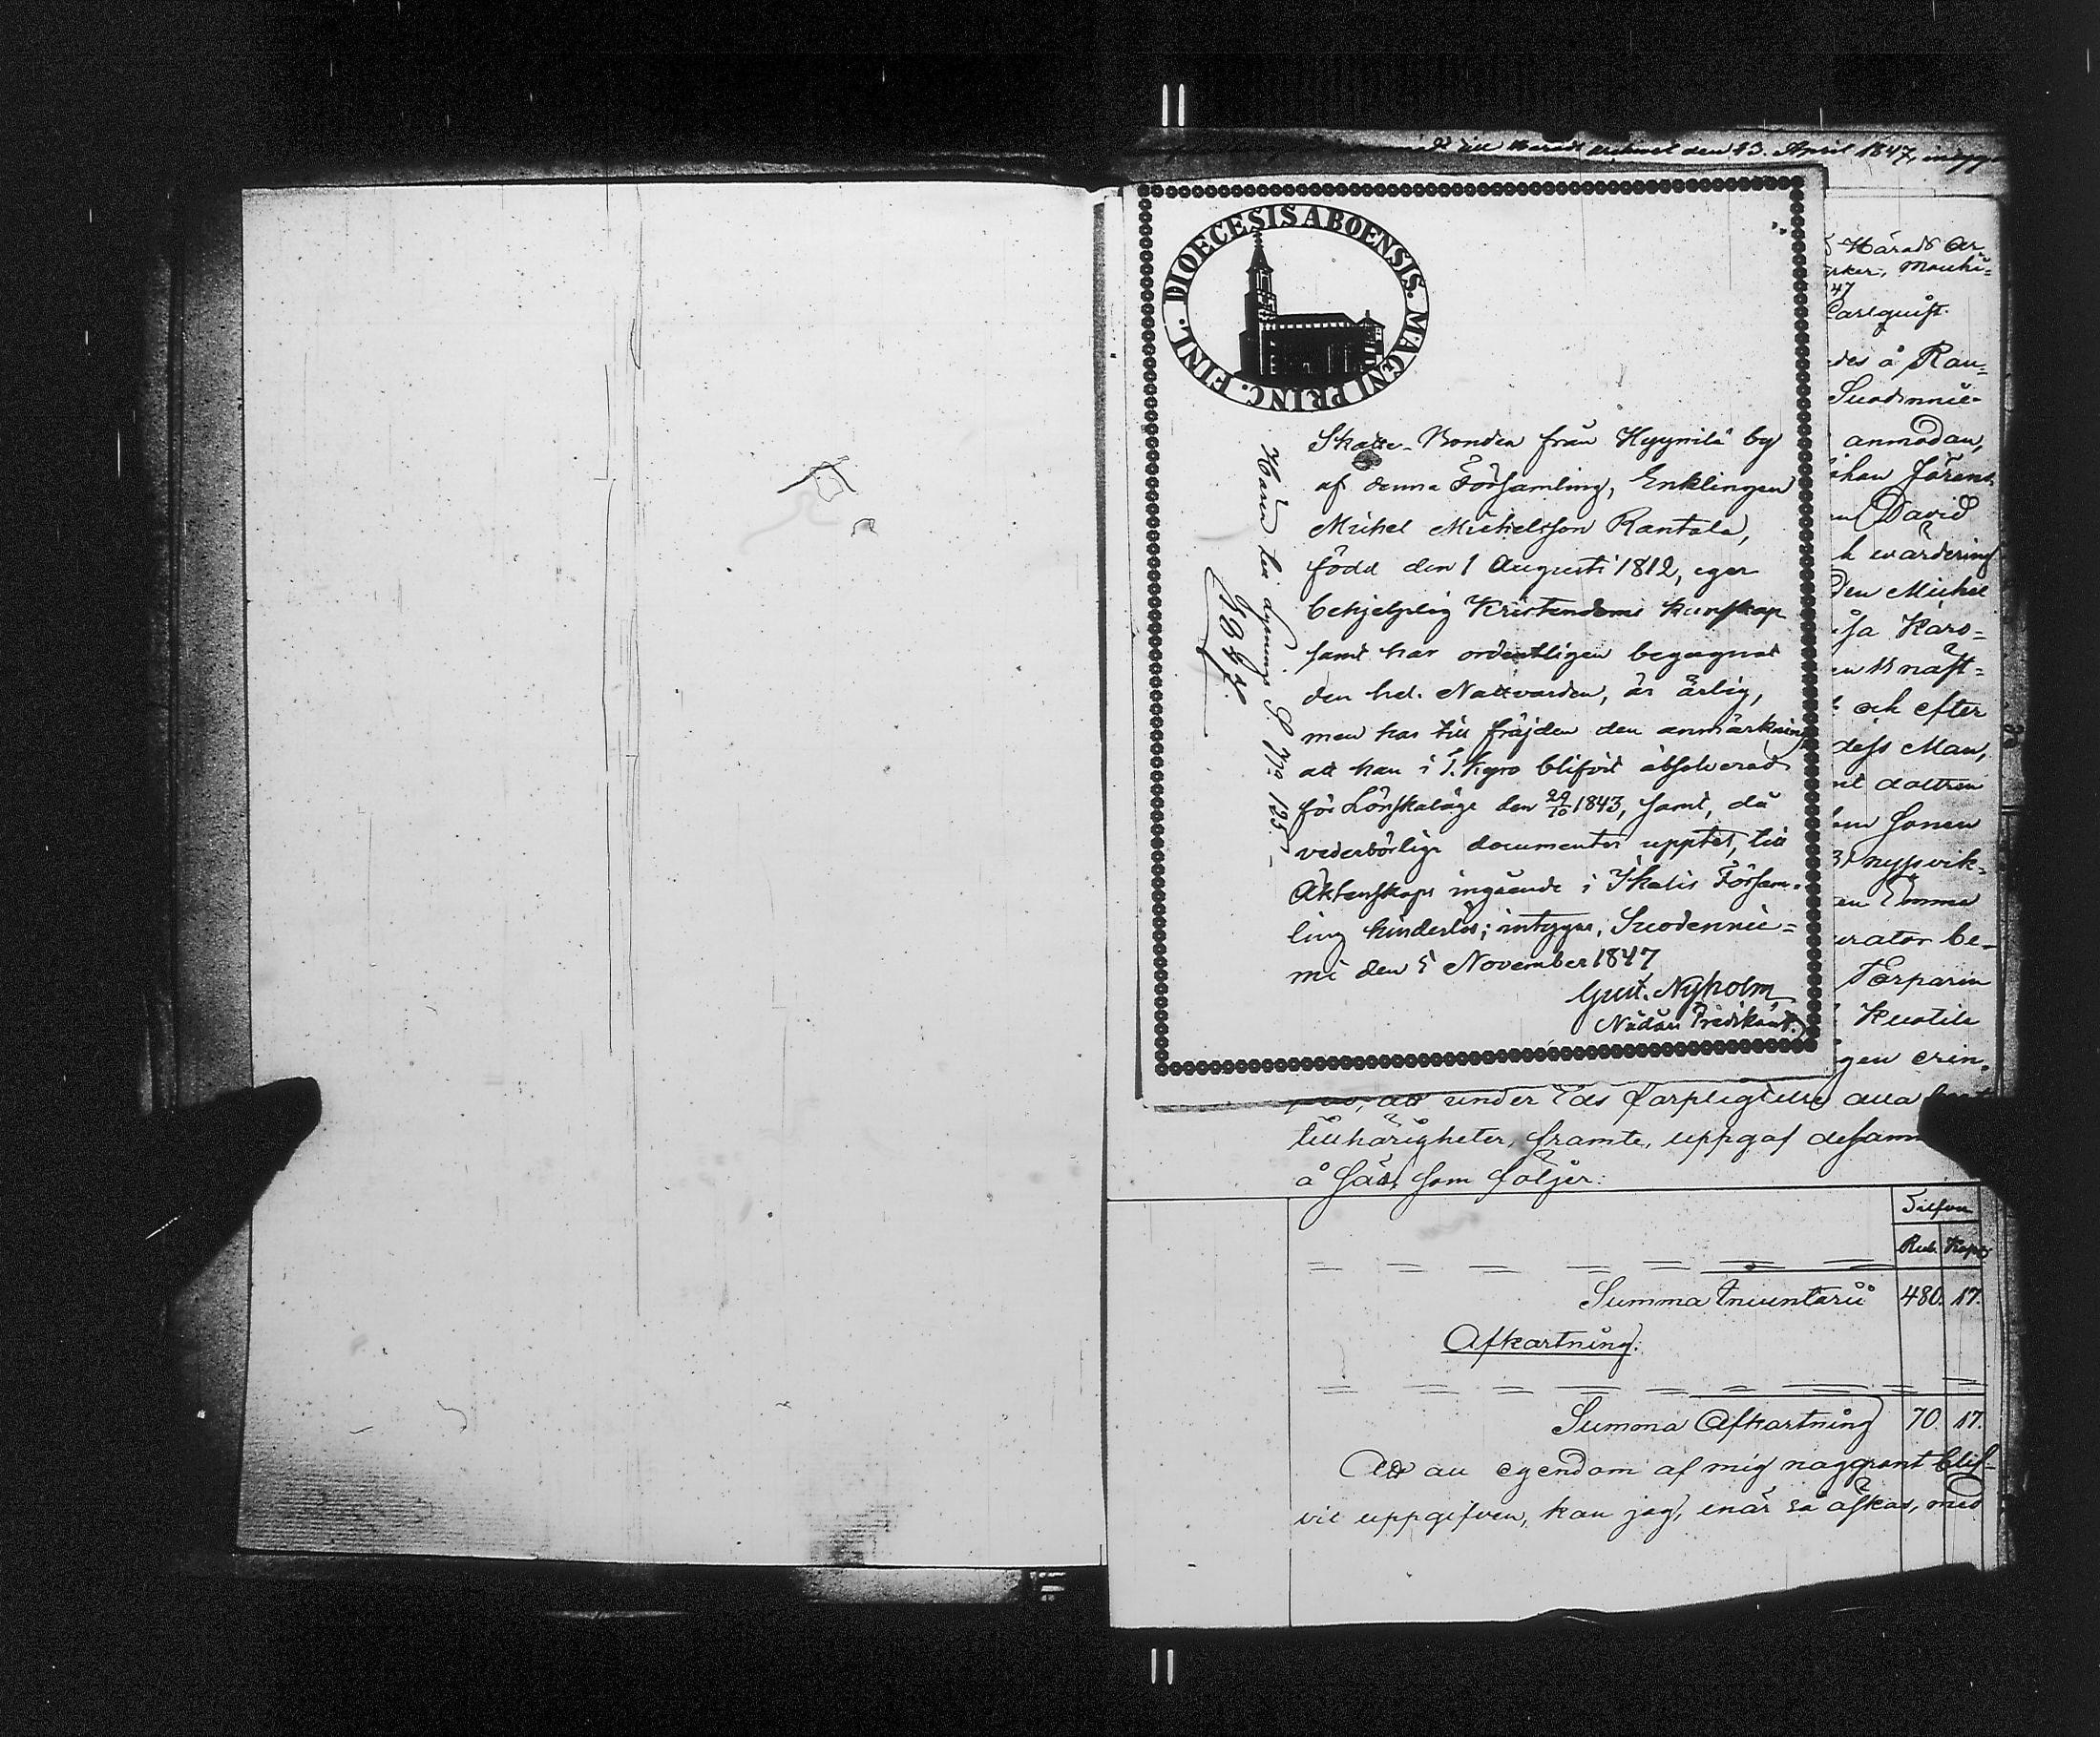 till Härads den 13. April 1847,
DIOECESIS ABOENSIS. MAGNI PRINC. FINL.
Skatte-Bonden från Hyynilä by
af denna Församling, Enklingen
Michel Michelsson Rantala,
född den 1 Augusti 1812, eger
behjelplig Kristendoms kunskap
samt har ordentligen begagnat
den hel. Nattvarden, är ärlig,
men har till fräjden den anmärkning
att han i T. Kyro blifvit absolverad
för Lönskaläge den 29/10 1843, samt, då
vederbörlige documenter upptet, till
Äktenskaps ingående i Ikalis Försam-
ling hinderlös; intygar, Suodennie=
mi den 5 November 1847
Gust. Nyholm
Nådårs Predikant.
Hären les lysnings S. No 125.
Härads Ar
47
Carlquist.
des å Ran=
Suodennie-
anmodan,
Johan Jörans
David
h wärdering
den Michel
Karo=
och efter
dess Man,
dottren
sonen
Emma
urator be-
Torparen
Kuotila
gen erin-
att under Eds förpligtelse alla
tillhörigheter, framte, uppgaf desam
å sätt, som följer:
Silfver
Rub. Kop.
Summa Inventarii 480. 17.
Afkortning:
Summa Afkortning 70. 17.
Att all egendom af mig noggrant blif-
vit uppgifven, kan jag, enär så äskas, med